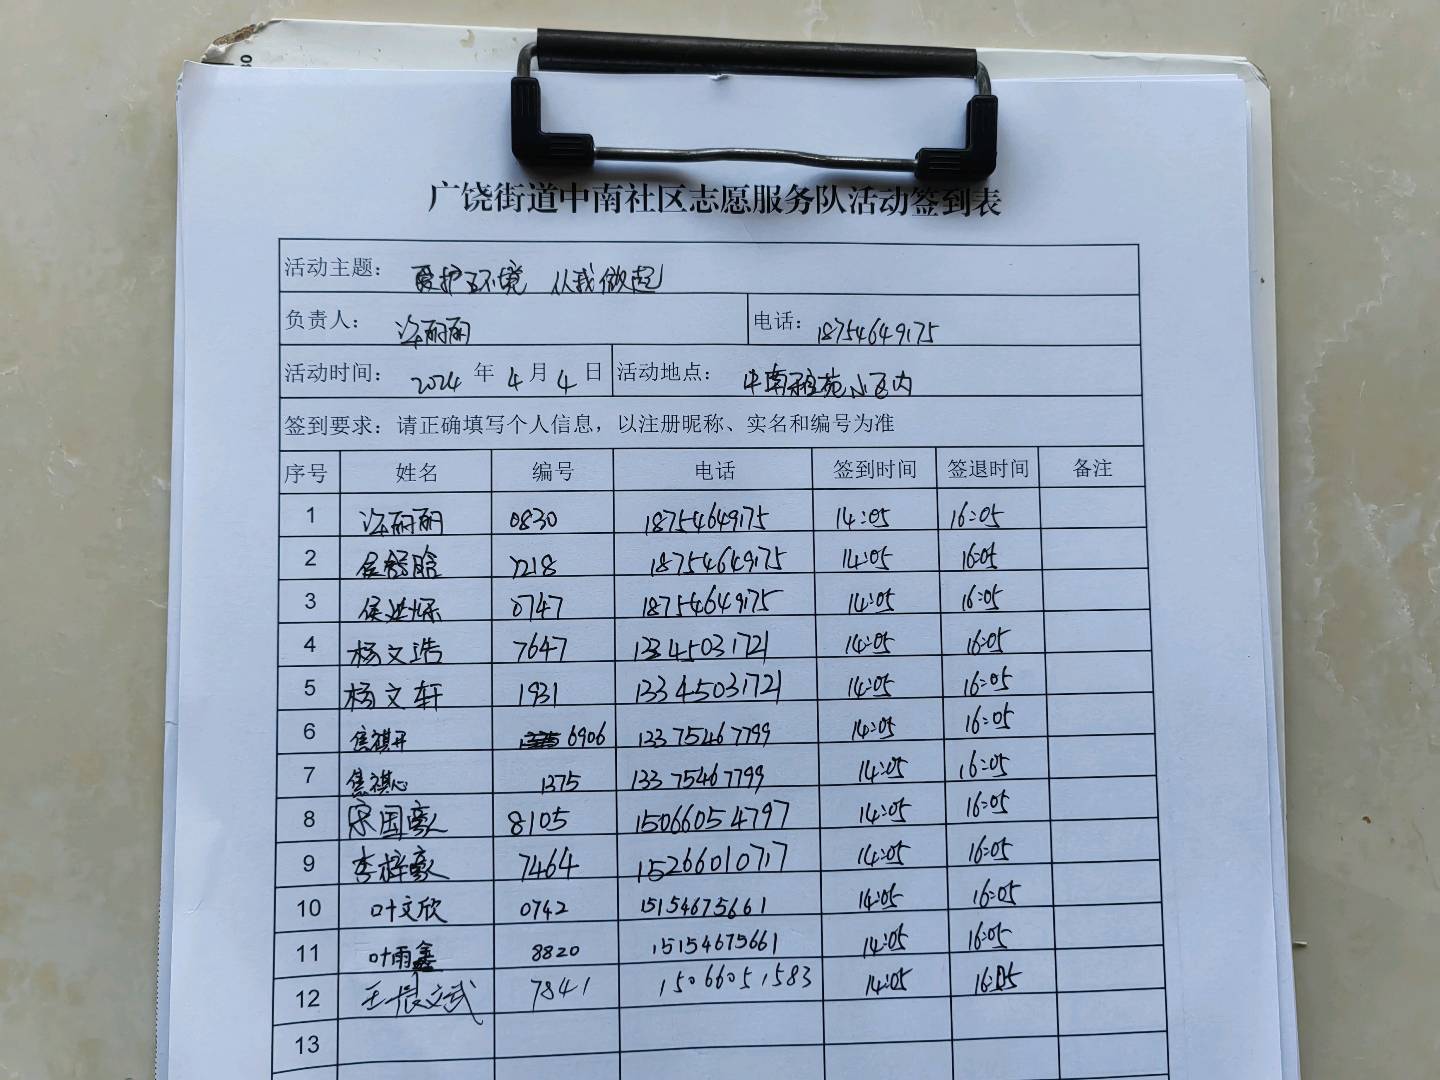 广饶街道中南社区志愿服务队活动签到表
活动主题： 爱护环境 从我做起
负责人： 许丽丽 电话：18754649175
活动时间： 2024 年 4 月 4 日 活动地点： 中南雅苑小区内
签到要求：请正确填写个人信息，以注册昵称、实名和编号为准
序号 姓名 编号 电话 签到时间 签退时间 备注
1 许丽丽 0830 18754649175 14:05 16:05
2 侯舒晗 7218 18754649175 14:05 16:05
3 侯 0747 18754649175 14:05 16:05
4 杨文浩 7647 13345031721 14:05 16:05
5 杨文轩 1931 13345031721 14:05 16:05
6 焦祺开 6906 13375467799 14:05 16:05
7 焦祺心 1375 13375467799 14:05 16:05
8 宋国豪 8105 15066054797 14:05 16:05
9 李梓豪 7464 15266010717 14:05 16:05
10 叶文欣 0742 15154675661 14:05 16:05
11 叶雨鑫 8820 15154675661 14:05 16:05
12 王宸文武 7841 15066051583 14:05 16:05
13